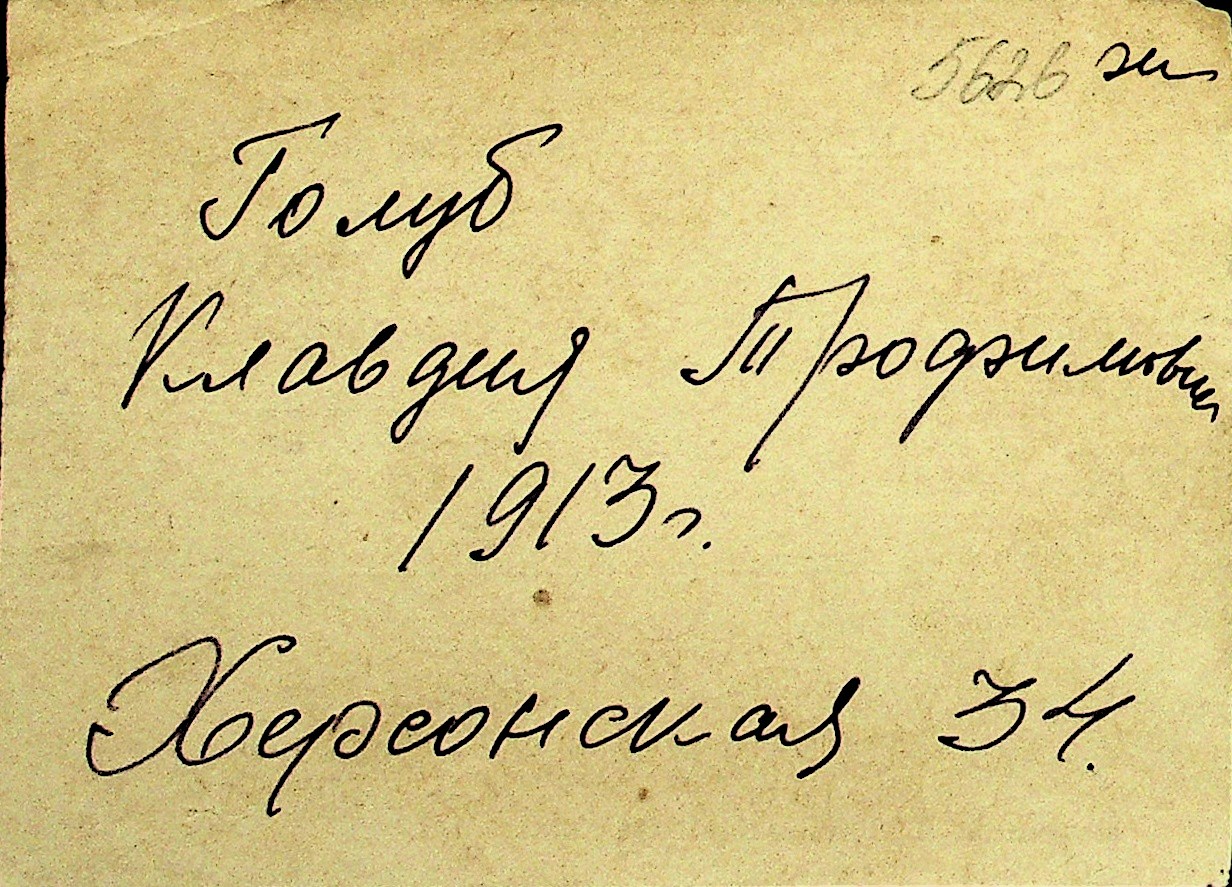 5626 ж
Голуб
Клавдия Трофимовна
1913 г.
Херсонская 34.